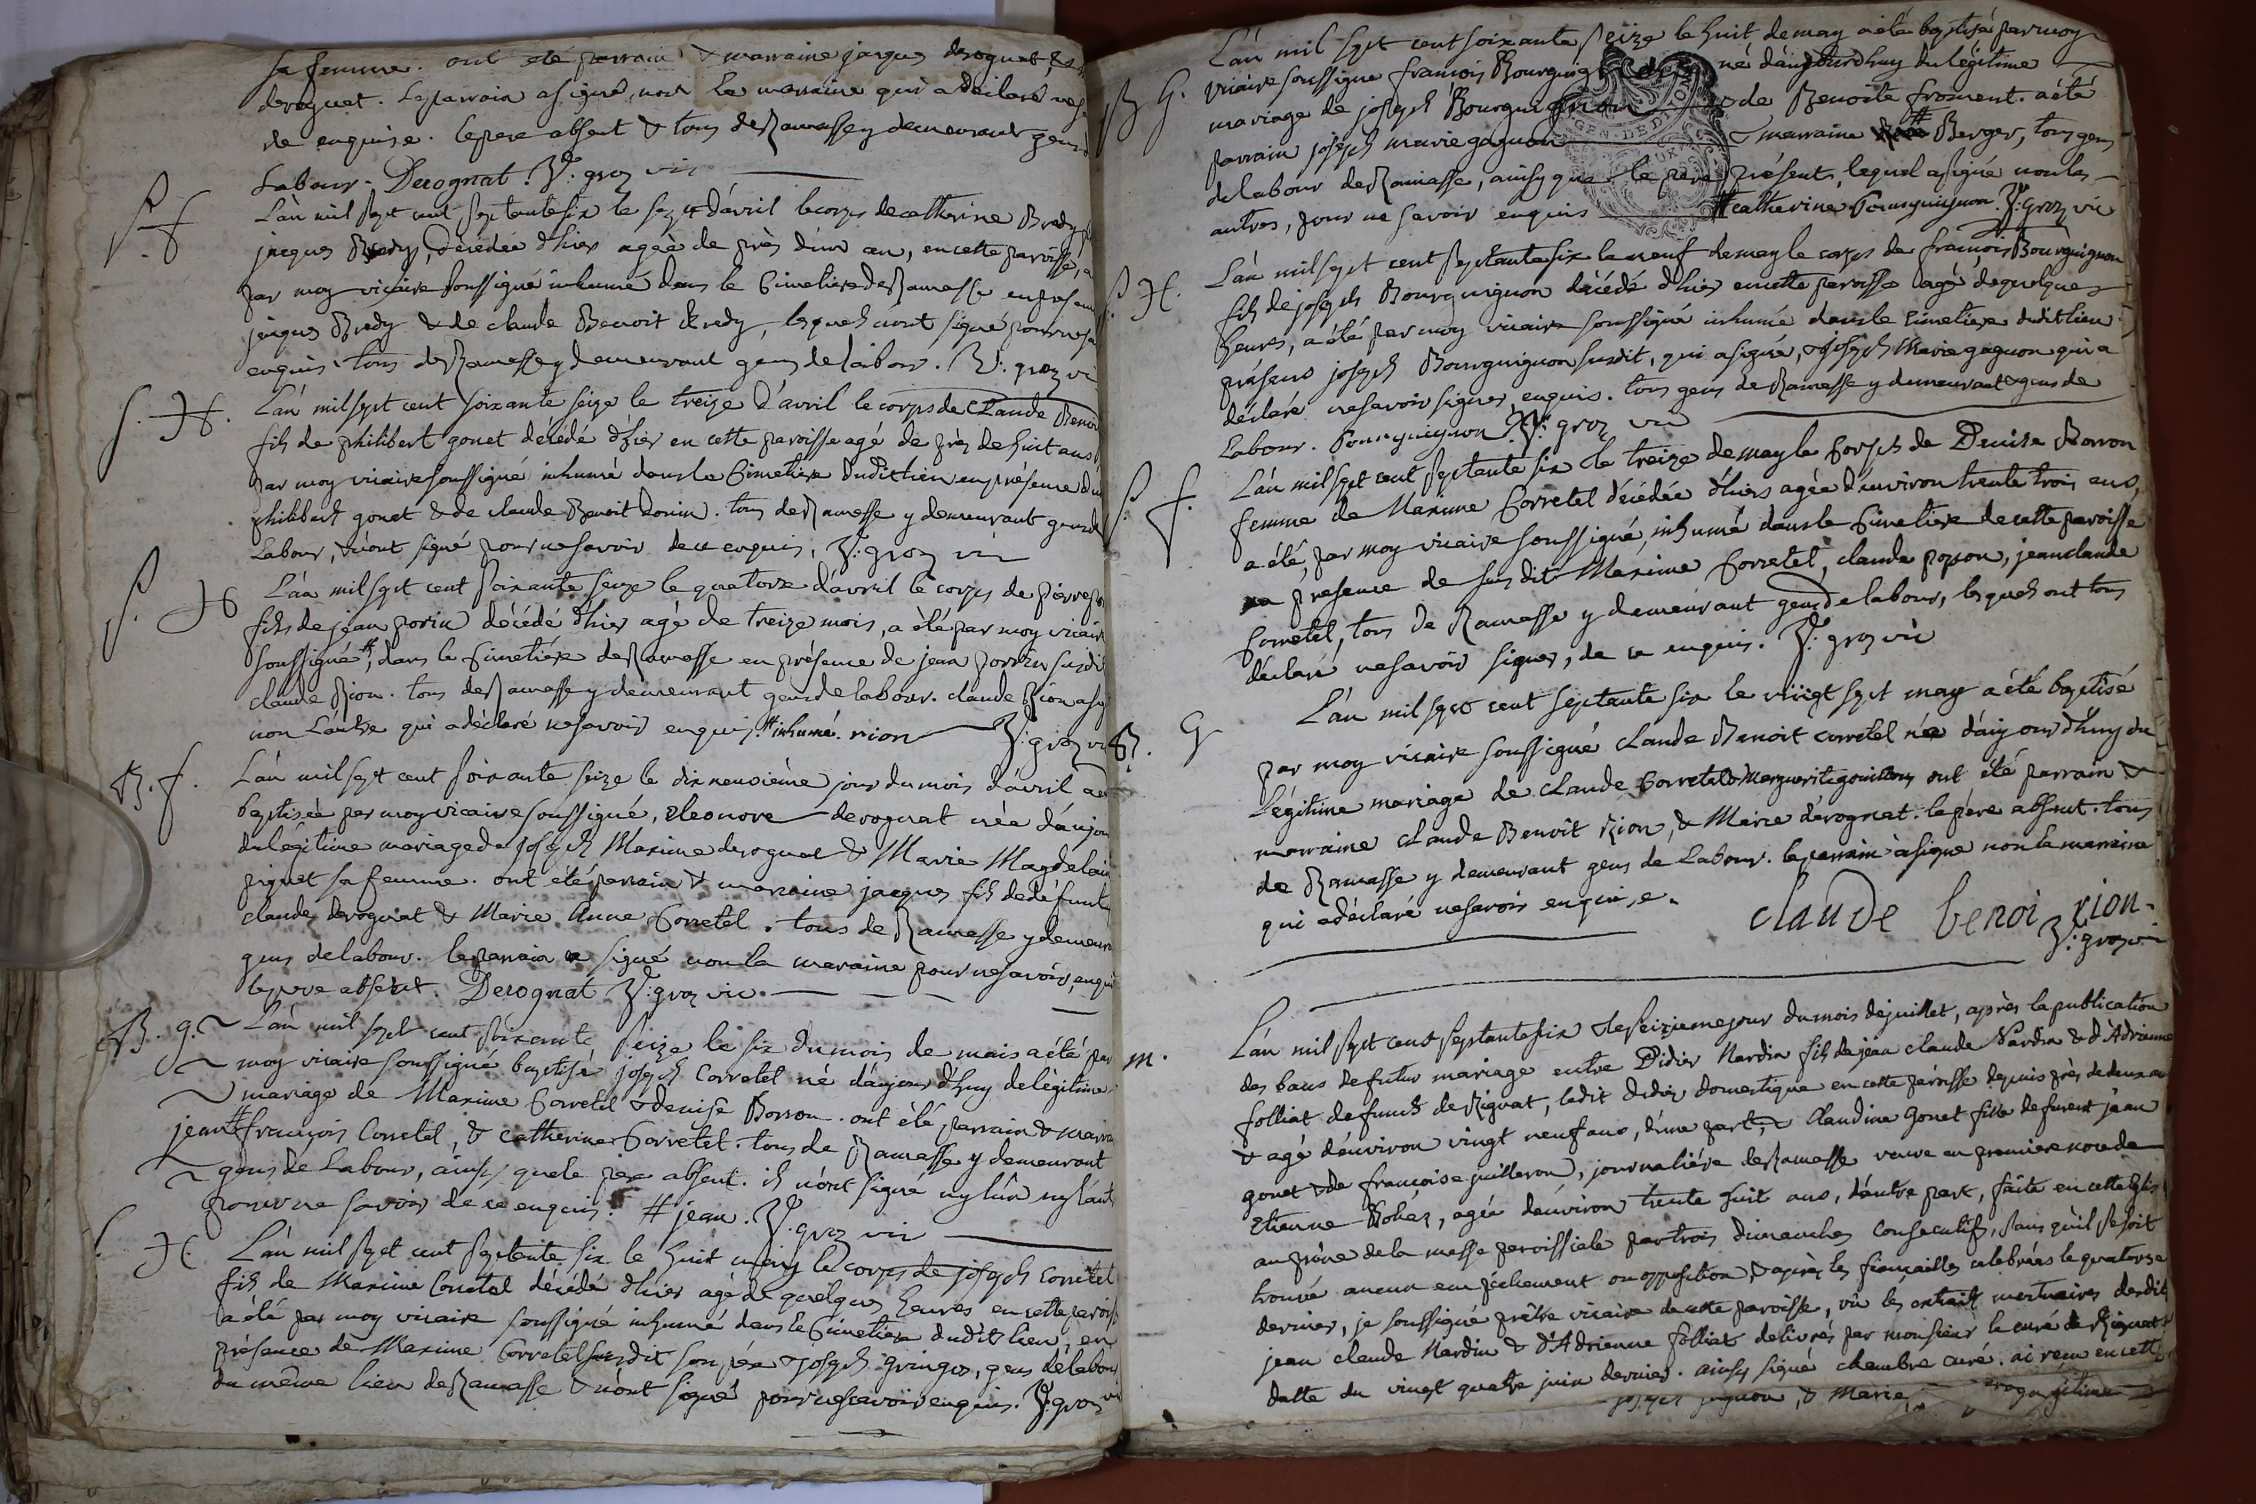 sa femme. ont eté parrain & marraine jacques derognat, &
derognat. Le parrain a signé, non la marraine qui a déclaré ne
de enquise. le pere absent & tous de Ramasse y demeurant gens
Labour. Derognat. groz vic
S. f. L'an mil sept cent septente six le d'avril le corps de catherine Bredy
jacques Bredy, décédée d'hier agée de près d'un an, en cette paroisse, a
par moy vicaire soussigné inhumé dans le Cimetiere de Ramasse en presence
jacques Bredy & de claude Benoit Bredy, lesquels n'ont signé pour ne sa
enquis tous de Ramasse y demeurant gens de labour. groz vi
S. H. L'an mil sept cent soixante seize le treize d'avril le corps de Claude Benoi
fils de philibert gonet décédé d'hier en cette paroisse agé de près de huit ans
par moy vicaire soussigné inhumé dans le Cimetiere dudit lieu en présence du
philibert gonet & de claude Benoit . tous de Ramasse y demeurant gens de
Labour, & n'ont signé pour ne savoir de ce enquis, groz vic
S. H L'an mil sept cent soixante seize le quatorze d'avril le corps de pierre
fils de jean porin décédé d'hier agé de treize mois, a été par moy vicaire
soussigné #, dans le Cimetière de Ramasse en présence de jean porrin susdi
claude Rion. tous de Ramasse y demeurant gens de labour. claude Rion a si
non L'autre qui a déclaré ne savoir enquis. # inhumé. rion groz vi
B. f. L'an mil sept cent soixante seize le dix neuvième jour du mois d'avril a é
baptisée par moy vicaire soussigné, Eleonore derognat née d'aujou
du légitime mariage de joseph Maxime derognat & Marie Magdelain
piquet sa femme. ont été parrain & marraine jacques fils de défunt
claude derognat & Marie Anne Corretel. tous de Ramasse y demeura
gens de labour. le parrain a signé non la maraine pour ne savoir, enqui
le pere absent. Derognat groz vic.
B. g. L'an mil sept cent soixante seize le six du mois de mais a été par
moy vicaire soussigné baptisé joseph Corretel né d'aujour d'huy de légitime
mariage de Maxime Corretel & denise Borron. ont été parrain & marra
jean # françois Corretel, & catherine Corretel. tous de Ramasse y demeurant
gens de Labour, ainsy que le père absent. ils n'ont signé ny l'un ny l'aut
pour ne savoir de ce enquis. # jean. groz vic
S. H L'an mil sept cent septente six le huit may le corps de joseph Corretel
fils de Maxime Corretel décédé d'hier agé de quelques heures en cette parois
a été par moy vicaire soussigné inhumé dans le Cimetiere dudit lieu, en
présence de Maxime Corretel susdit son père & joseph gringoz, gens de labour
du même lieu de Ramasse & n'ont signé pour ne savoir enquis. groz vi
L'an mil sept cent soixante seize le huit de may a été baptisé par moy
B G. vicaire soussigné françois Bourguig né d'aujourd'huy du légitime
mariage de joseph Bourguignon & de Benoite froment. a été
parrain joseph marie gagnon & marraine # Berger, tous gens
de labour de Ramasse, ainsy que le père présents, lequel a signé non les
autres, pour ne savoir enquis # catherine Bourguignon. groz vic
S. H. L'an mil sept cent septente six le neuf de may le corps de françois Bourguignon
fils de joseph Bourguignon décédé d'hier en cette paroisse agé de quelques
heures, a été par moy vicaire soussigné inhumé dans le cimetiere dudit lieu
présens joseph Bourguignon susdit, qui a signé, & joseph Marie gagnon qui a
déclaré ne savoir signer, enquis. tous gens de Ramasse y demeurant & gens de
Labour. Bourguignon groz vic
S. f. L'an mil sept cent septente six le treize de may le Corps de Denise Borron
femme de Maxime Corretel décédée d'hier agée d'environ trente trois ans,
a été, par moy vicaire soussigné, inhumé dans le Cimetiere de cette paroisse
en presence de susdit Maxime Corretel, claude popon, jean claude
Corretel, tous de Ramasse y demeurant gens de labour, lesquels ont tous
déclaré ne savoir signer, de ce enquis. groz vic
B. G L'an mil sept cent septente six le vingt sept may a été baptisé
par moy vicaire soussigné claude Benoit corretel né d'aujourd'huy du
Légitime mariage de claude Corretel & Marguerite ont été parrain &
marraine claude Benoît Rion, & Marie derognat. le père absent. tous
de Ramasse y demeurant gens de Labour. le parrain a signé non la marraine
qui a déclaré ne savoir enquise.
claude benoi rion.
groz vi
m. L'an mil sept cent septente six le seizieme jour du mois de juillet, après la publication
des bans de futur mariage entre Didier Nardin fils de jean claude Nardin & d'Adrienne
folliat defunts de Rignat, ledit didier domestique en cette paroisse depuis près de deux an
& agé d'environ vingt neuf ans, d'une part, & Claudine Gonet fille de furent jean
gonet & de françoise juilleron, journaliére de Ramasse veuve en premiere noce de
Etienne Bohaz, agée d'environ trente huit ans, d'autre part, faite en cette eglis
au prône de la messe paroissiale par trois dimanches consecutifs, sans qu'il se soit
trouvé aucun empéchement ou opposition, & après les fiançailles celebrées le quatorze
dernier, je soussigné prêtre vicaire de cette paroisse, vû les extraits mortuaires desdit
jean claude Nardin & d'Adrienne folliat delivrés par monsieur le curé de Rignat
datte du vingt quatre juin dernier. ainsy signé chambre curé. ai reçu en cett
joseph gagnon, & Marie